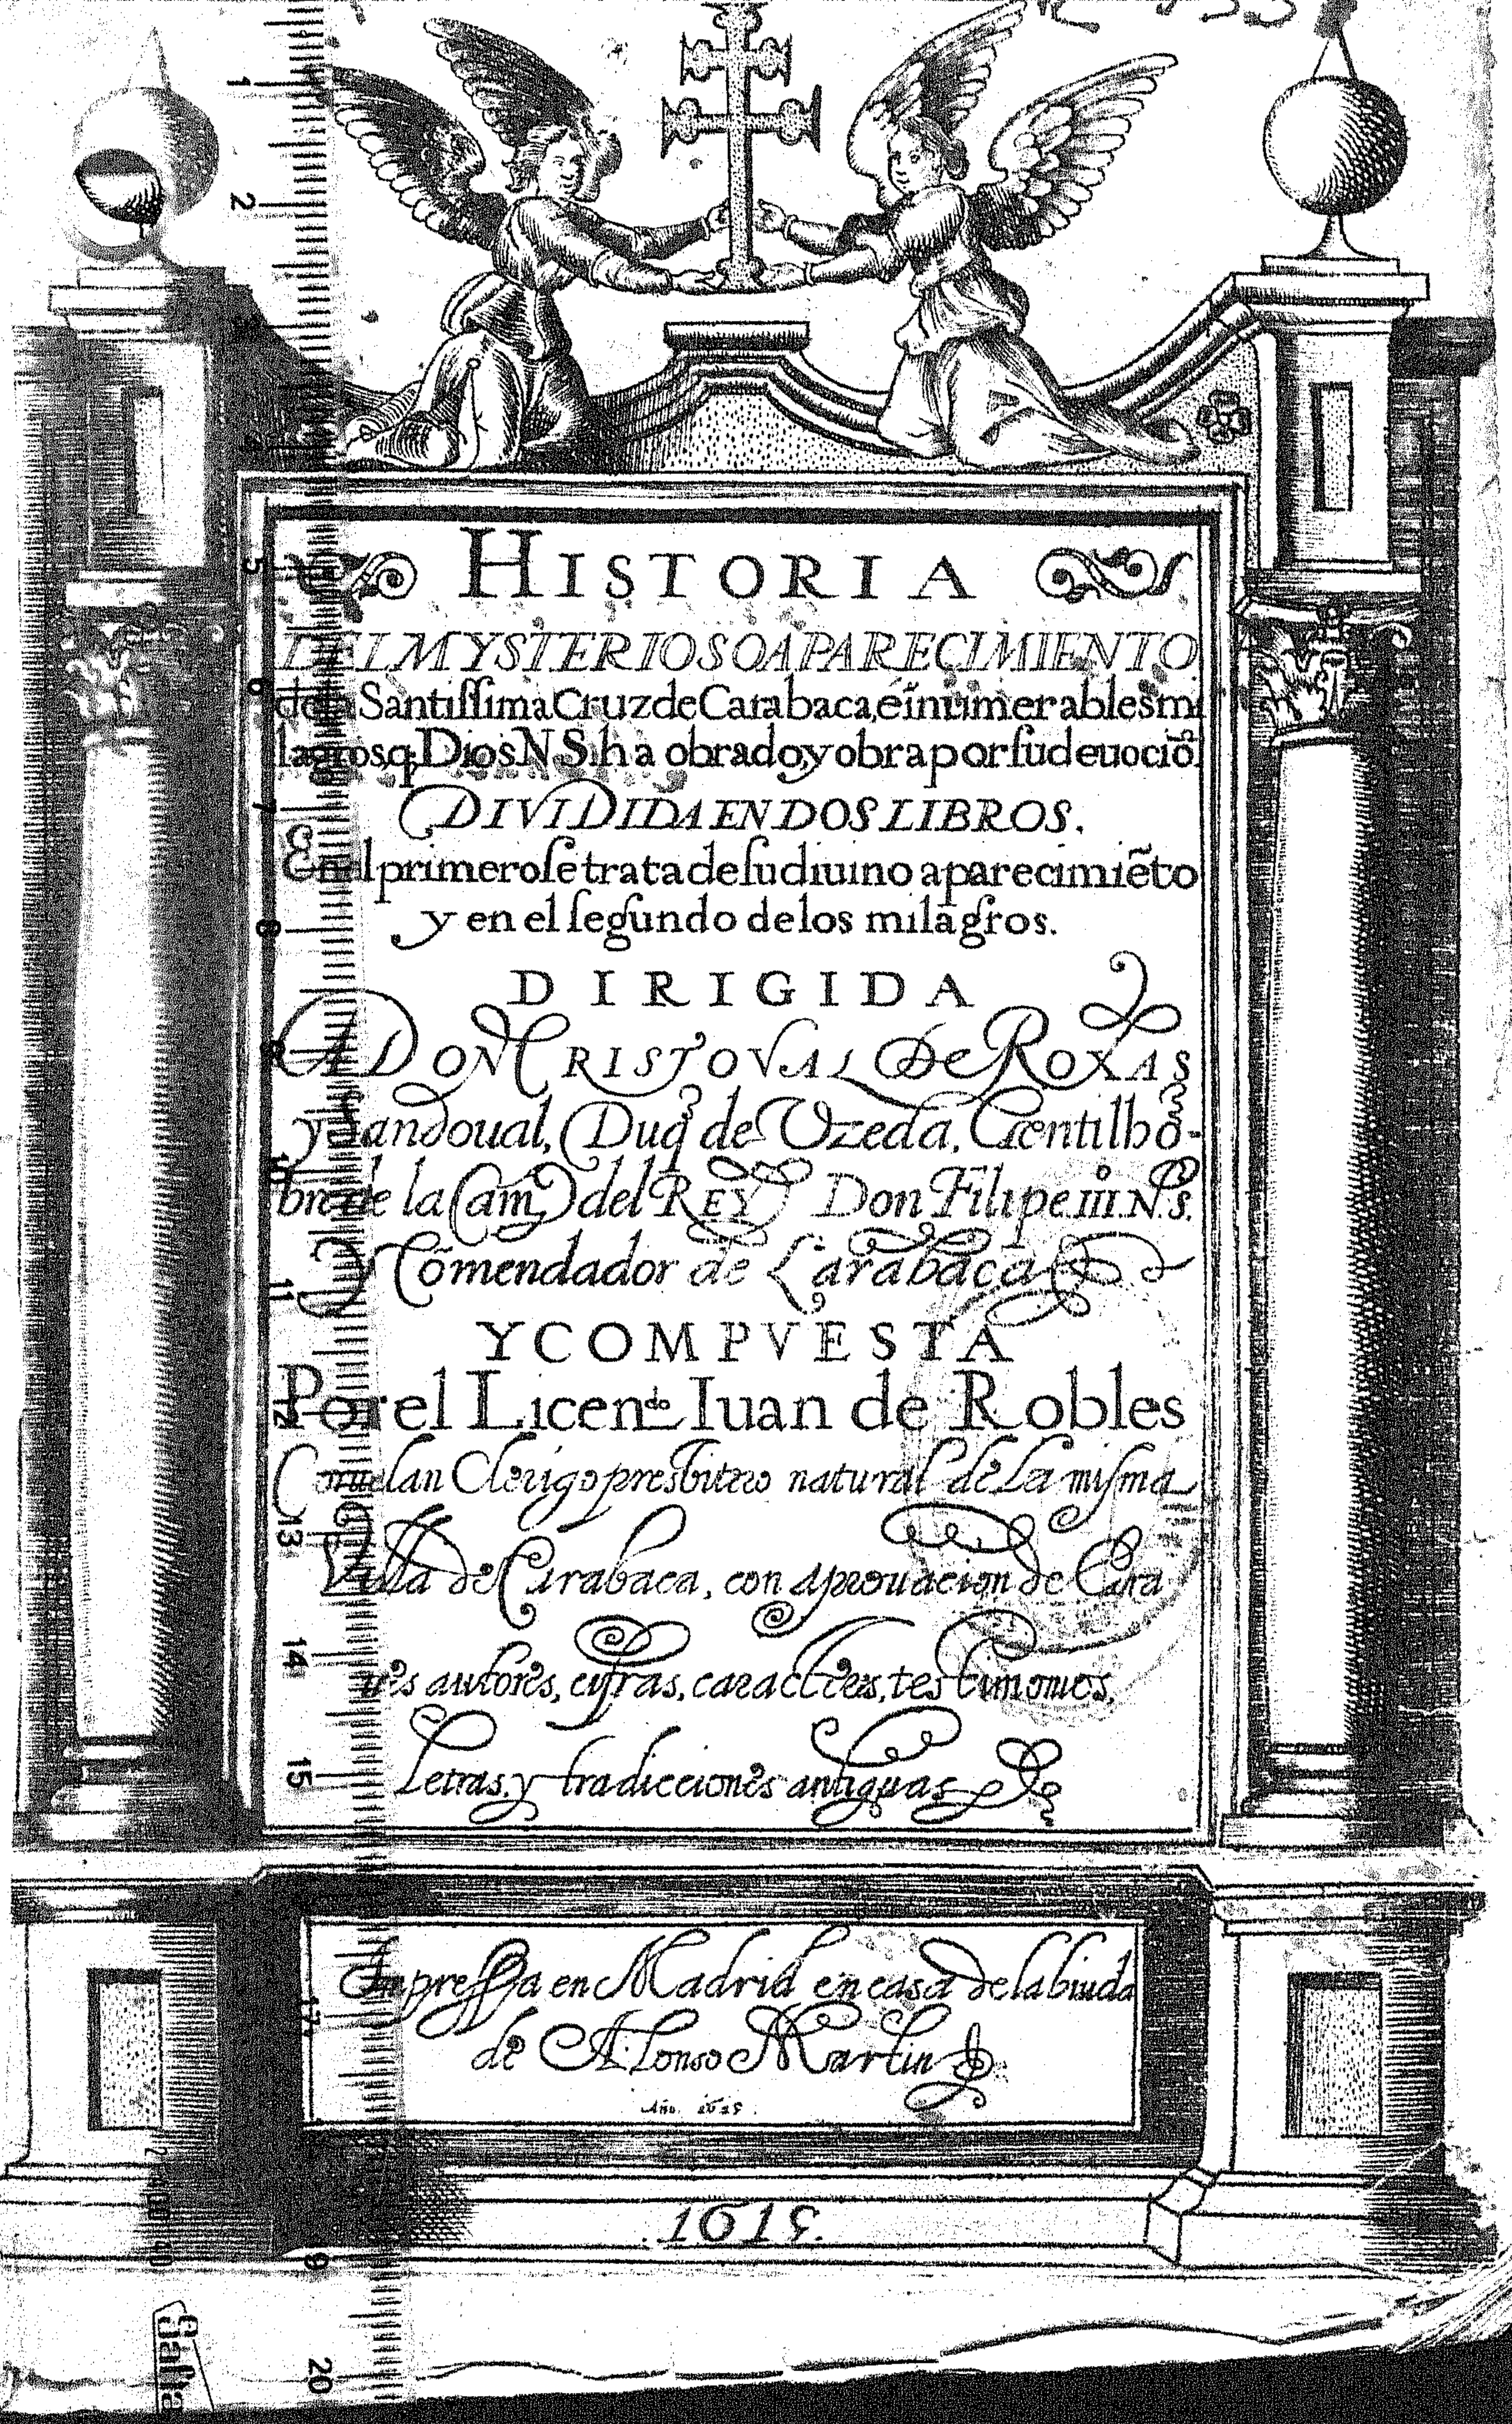 HISTORIA
DEL MYSTERIOSO APARECIMIENTO
de la Santissima Cruz de Carabaca, e inũmerables mi
lagros, q̃ Dios N.S. ha obrado, y obra por su deuociõ.
DIVIDIDA EN DOS LIBROS.
En el primero se trata de su diuino aparecimiẽto
y en el segundo de los milagros.
DIRIGIDA
A DON CRISTOVAL De ROXAS
y Sandoual, Duq̃ de Vzeda, Gentilhõ-
bre de la Cam.ª del REY Don Filipe iii. N.S.
Y Comendador de Carabaca
Y COMPVESTA
Por el Licen.do Iuan de Robles
Coruelan Clerigo presbitero natural de La misma
Villa de Carabaca, con aprouacion de
autores, cifras, caracteres, testimonios,
Letras, y tradicciones antiguas
Impressa en Madrid en casa de la biuda
de Alonso Martin
Año. 1615.
.1615.
1
2
3
4
5
6
7
8
9
10
11
12
13
14
15
17
20